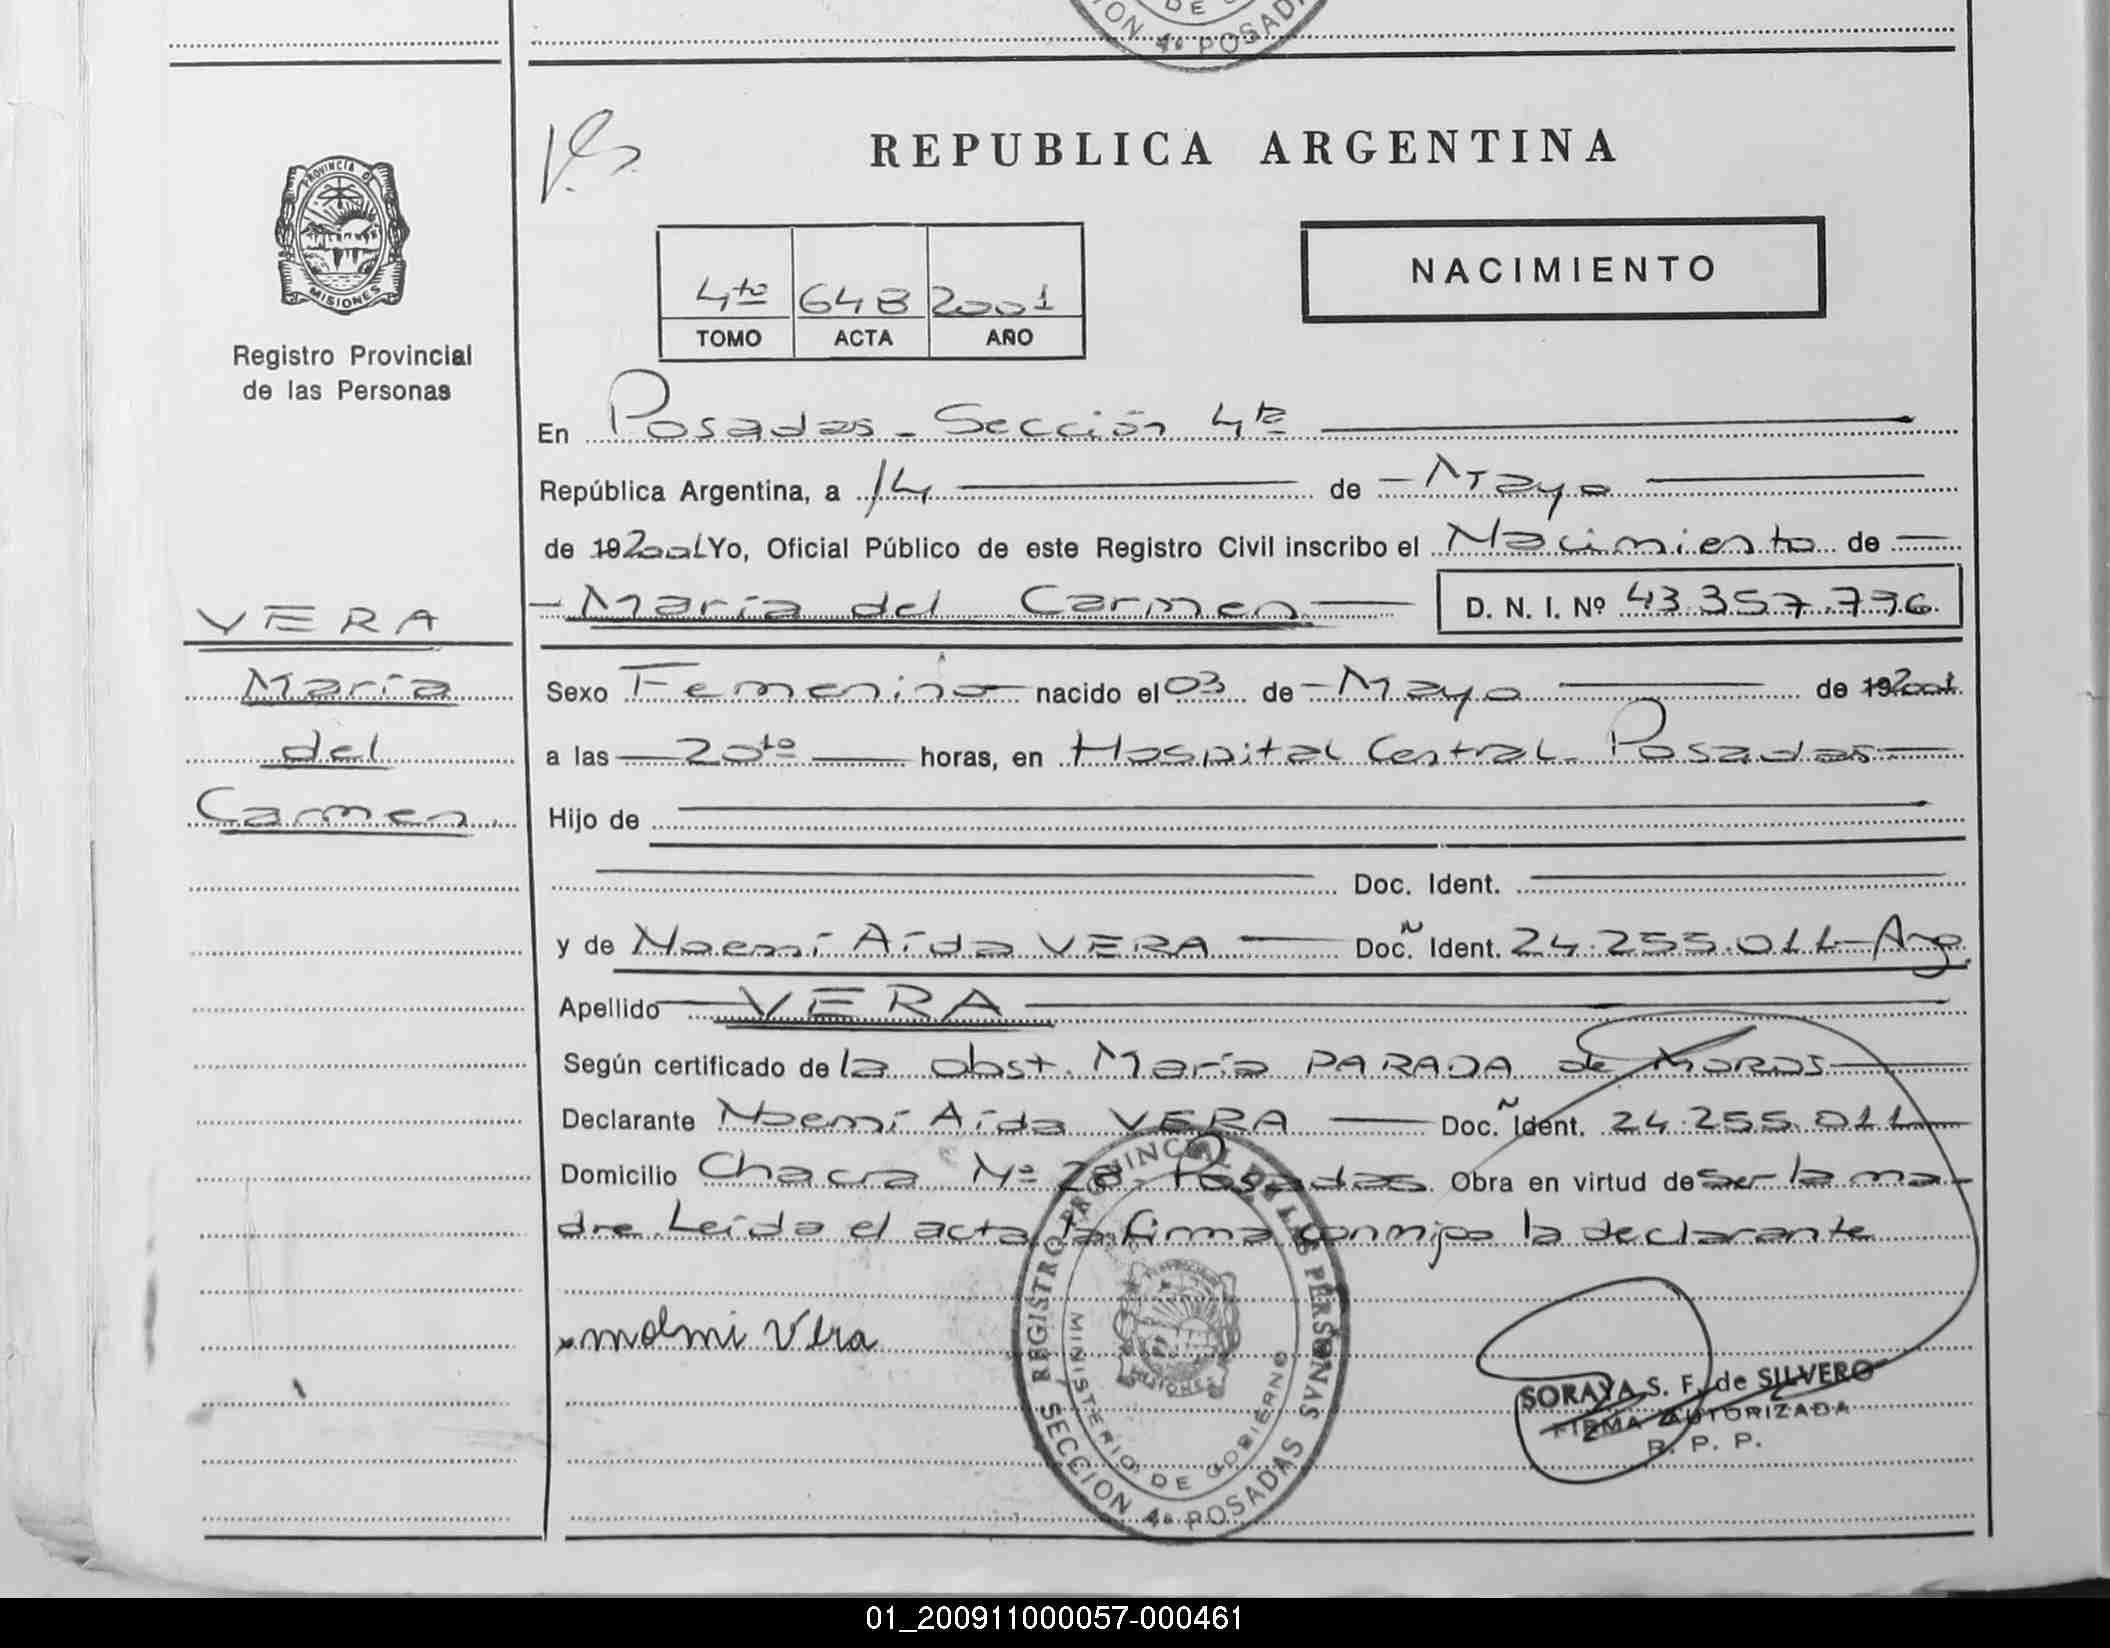 ION 4a POSADA
DE
REPUBLICA ARGENTINA
PROVINCIA D
MISIONES
Registro Provincial
de las Personas
4to 648 2001
TOMO ACTA AÑO
NACIMIENTO
En Posadas - Sección 4ta
República Argentina, a 14 de - Mayo
de 19 2001 Yo, Oficial Público de este Registro Civil inscribo el Nacimiento de
- María del Carmen D. N. I. Nº 43.357.796
VERA
María
del
Carmen.
Sexo Femenino nacido el 03 de - Mayo de 19 2001
a las 20 10 horas, en Hospital Central Posadas
Hijo de
Doc. Ident.
y de Noemí Aída VERA Doc. Ñ Ident. 24.255.011 - Arg.
Apellido VERA
Según certificado de la obst. María PARADA de MOROS
Declarante Noemí Aída VERA Doc. Ñ Ident. 24.255.011
Domicilio Chacra Nº 28 - Posadas Obra en virtud de ser la ma-
dre. Leída el acta, la firma conmigo la declarante
x noemi Vera
REGISTRO PROVINCIAL DE LAS PERSONAS
MINISTERIO DE GOBIERNO
MISIONES
SECCION 4a POSADAS
SORAYA S. F. de SILVERO
FIRMA AUTORIZADA
R. P. P.
01_200911000057-000461